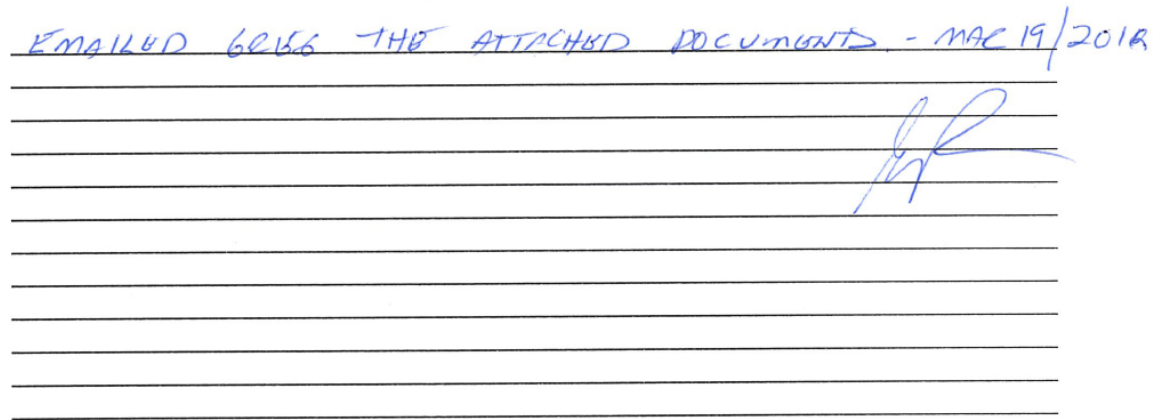 EMAILED GREG THE ATTACHED DOCUMENTS. - MAR 19/2012